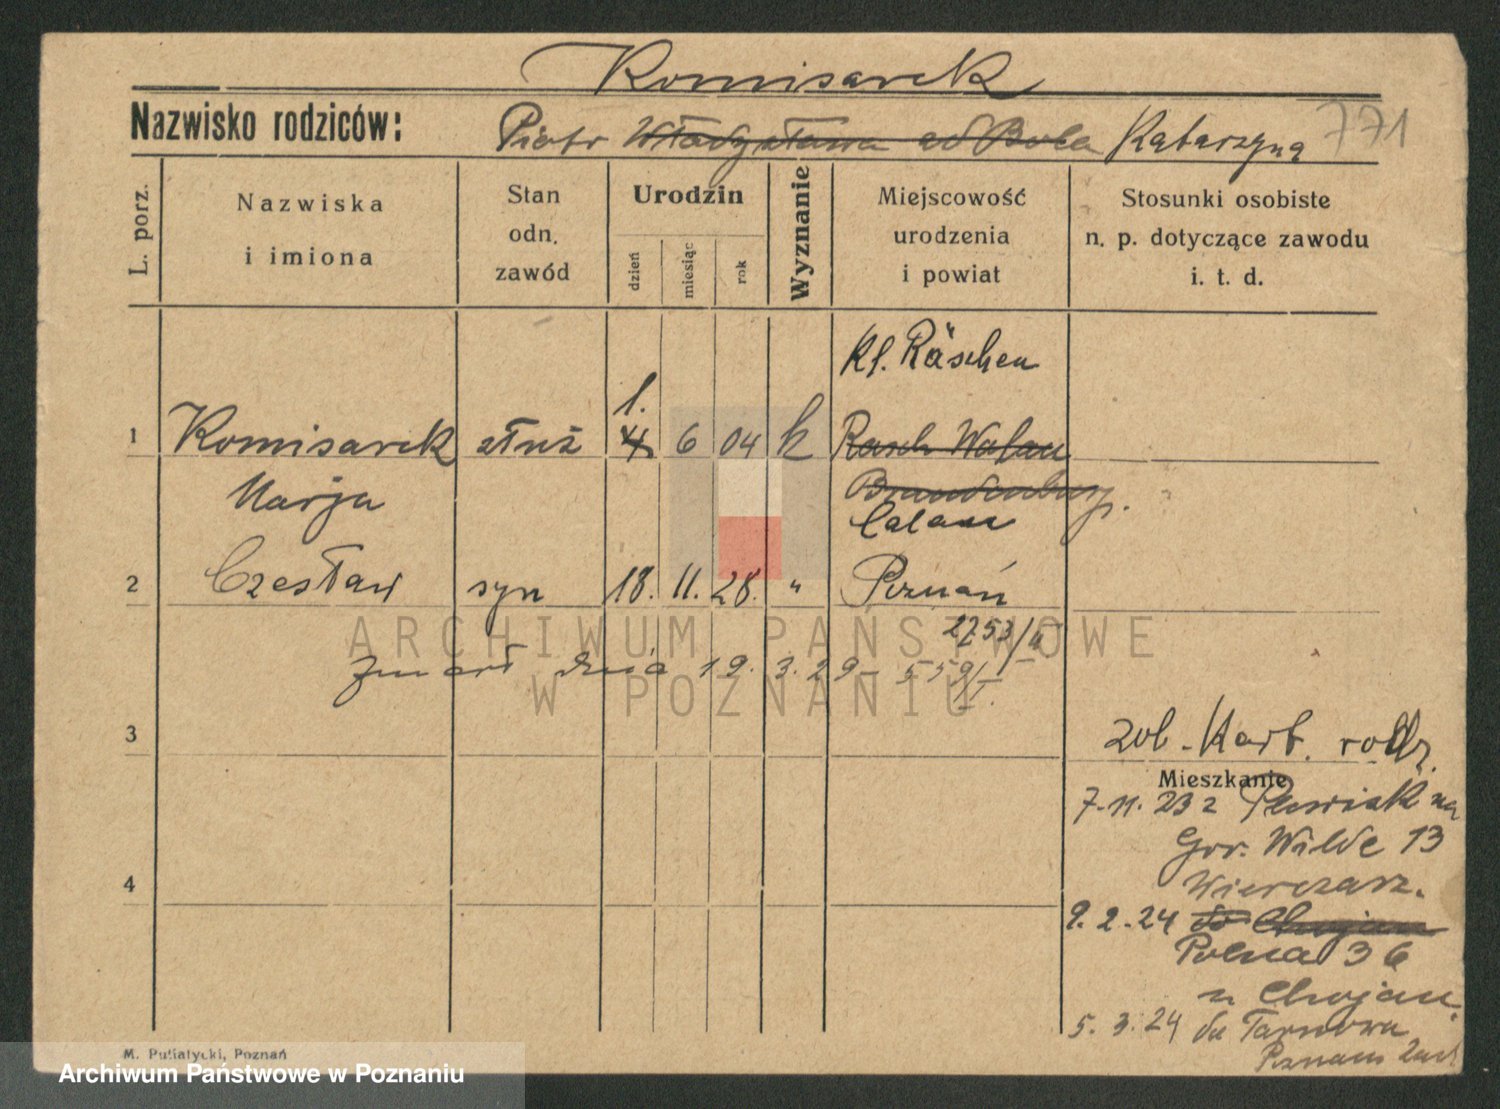 Komisarek
Nazwisko rodziców: Piotr Władysława Katarzyna 771
L. porz.
Nazwiska
i imiona
Stan
odn.
zawód
Urodzin
dzień
miesiąc
rok
Wyznanie
Miejscowość
urodzenia
i powiat
Stosunki osobiste
n. p. dotyczące zawodu
i. t. d.
Kl. Räschen
1.
1 Komisarek służ 4 6 04 k Rasch Walau
Marja Brandenburg.
Calau
2 Czesław syn 18. 11. 28. " Poznań
2753/II
zmarł dnia 19. 3. 29 - 559/I.
3
zob. Kart. rodz.
Mieszkanie
7. 11. 23 z na
Gór. Wilde 13
4
9. 2. 24 do Chojan
Polna 36
u Chojan.
5. 3. 24 do Tarnowa
Poznań
M. Putiatycki, Poznań
ARCHIWUM PAŃSTWOWE
W POZNANIU
Archiwum Państwowe w Poznaniu